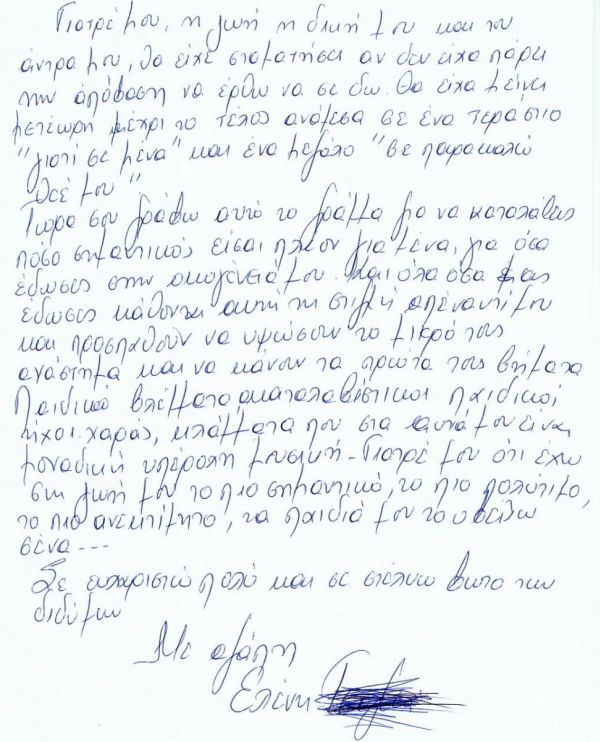 Γιατρέ μου, η ζωή η δική μου και του
άντρα μου, θα είχε σταματήσει αν δεν είχα πάρει
την απόφαση να έρθω να σε δω. Θα είχα μείνει
μετέωρη μέχρι το τέλος ανάμεσα σε ένα τεράστιο
"γιατί σε μένα" και ένα μεγάλο "σε παρακαλώ
Θεέ μου"
Τώρα σου γράφω αυτό το γράμμα για να καταλάβεις
πόσο σημαντικός είσαι πλέον για μένα, για όσα
έδωσες στην οικογένειά μου. Και όλα όσα μας
έδωσες κάθονται αυτή τη στιγμή απέναντί μου
και προσπαθούν να υψώσουν το μικρό τους
ανάστημα και να κάνουν τα πρώτα τους βήματα
Παιδικά βλέμματα ακαταλαβίστικοι παιδικοί
ήχοι χαράς, κλάμματα που στα αυτιά μου είναι
μοναδική υπέροχη μουσική - Γιατρέ μου ότι έχω
στη ζωή μου το πιο σημαντικό, το πιο πολύτιμο,
το πιο ανεκτίμητο, τα παιδιά μου το οφείλω
σένα ---
Σε ευχαριστώ πολύ και σε στέλνω φωτο των
διδύμων
Με αγάπη
Ελένη